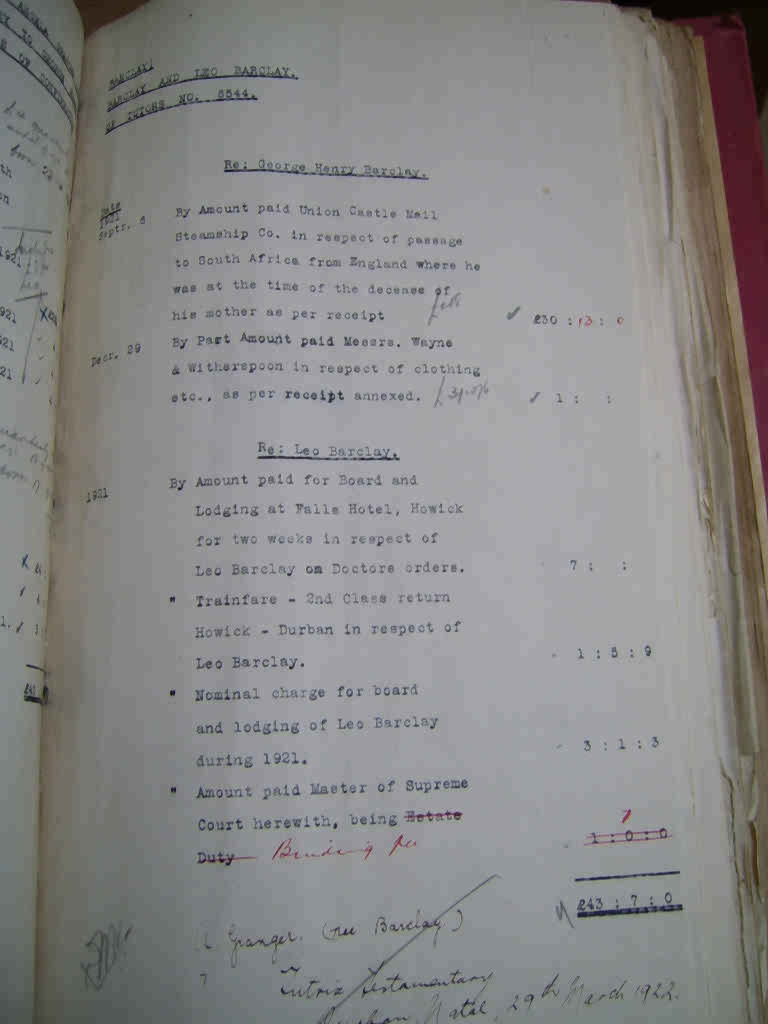 BARCLAY:
BARCLAY AND LEO BARCLAY.
OF TUTORS NO. 6544.
Re: George Henry Barclay.
Date
1921
Septr. 6 By Amount paid Union Castle Mail
Steamship Co. in respect of passage
to South Africa from England where he
was at the time of the decease of
his mother as per receipt £30 : 3 : 0
Decr. 29 By Part Amount paid Messrs. Wayne
& Witherspoon in respect of clothing
etc., as per receipt annexed. 1 : :
Re: Leo Barclay.
1921 By Amount paid for Board and
Lodging at Falls Hotel, Howick
for two weeks in respect of
Leo Barclay on Doctors orders. 7 : :
" Trainfare - 2nd Class return
Howick - Durban in respect of
Leo Barclay. 1 : 5 : 9
" Nominal charge for board
and lodging of Leo Barclay
during 1921. 3 : 1 : 3
" Amount paid Master of Supreme
Court herewith, being Estate
Duty 1 : 0 : 0
£43 : 7 : 0
Granger. (nee Barclay.)
Tutrix Testamentary
Durban, Natal, 29th March 1922.